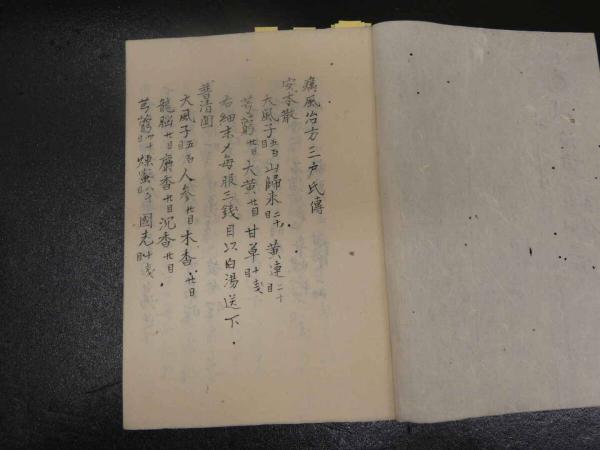 癘風治方三戸氏傳
安本散
大風子五百目 山歸来二十目 黄連二十目
芎藭廿目 大黄廿目 甘草十戔目
右細末〆每服三錢目以白湯送下
普清圓
大風子五百目 人參廿目 木香廿目
龍脳廿目 麝香廿目 沉香廿目
芎藭四十目 煉蜜